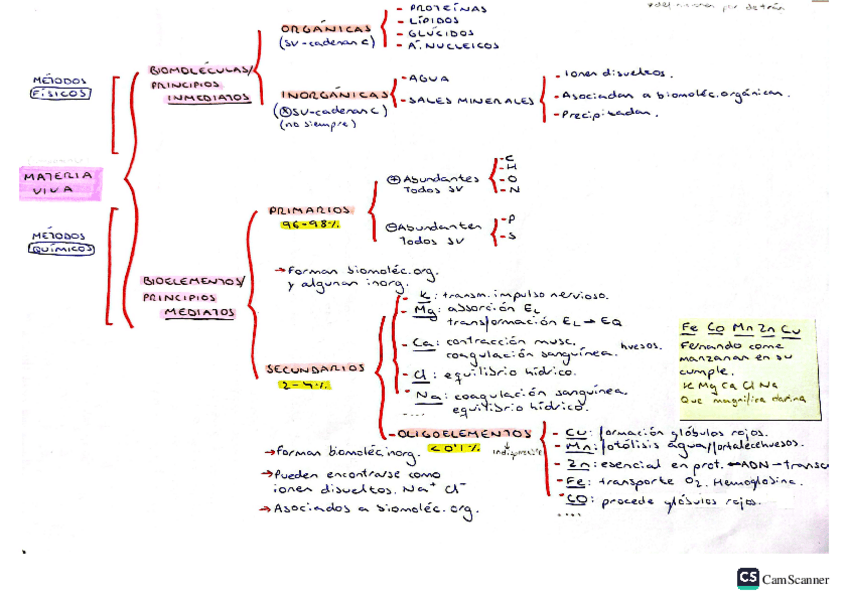 MÉTODOS
FÍSICOS
MATERIA
VIVA
MÉTODOS
QUÍMICOS
BIOMOLÉCULAS/
PRINCIPIOS
INMEDIATOS
ORGÁNICAS
(SV-cadenas C)
- PROTEÍNAS
- LÍPIDOS
- GLÚCIDOS
- A. NUCLEICOS
INORGÁNICAS
(⊗SV-cadenas C)
(no siempre)
- AGUA
- SALES MINERALES
- Iones disueltos.
- Asociadas a bioméc. orgánicas.
- Precipitadas.
BIOELEMENTOS/
PRINCIPIOS
MEDIATOS
PRIMARIOS
96-98%
⊕ Abundantes
Todos SV
- C
- H
- O
- N
⊖ Abundantes
Todos SV
- P
- S
→ Forman bioméc. org.
y algunas inorg.
SECUNDARIOS
2-4%
- K: transm. impulso nervioso.
- Mg: absorción EL
transformación EL → EQ
- Ca: contracción musc.
coagulación sanguínea. huesos.
- Cl: equilibrio hídrico.
- Na: coagulación sanguínea.
equilibrio hídrico.
....
- OLIGOELEMENTOS
<0'1%
- Cu: formación glóbulos rojos.
- Mn: fotólisis agua/fortalece huesos.
- Zn: esencial en prot. ADN → transcr
- Fe: transporte O2. Hemoglobina.
- CO: procede glóbulos rojos.
....
→ Forman bioméc inorg.
→ Pueden encontrarse como
iones disueltos. Na+ Cl-
→ Asociados a bioméc. org.
Fe Co Mn Zn Cu
Fernando come
manzanas en su
cumple.
K Mg Ca Cl Na
Que magnífica
CS CamScanner